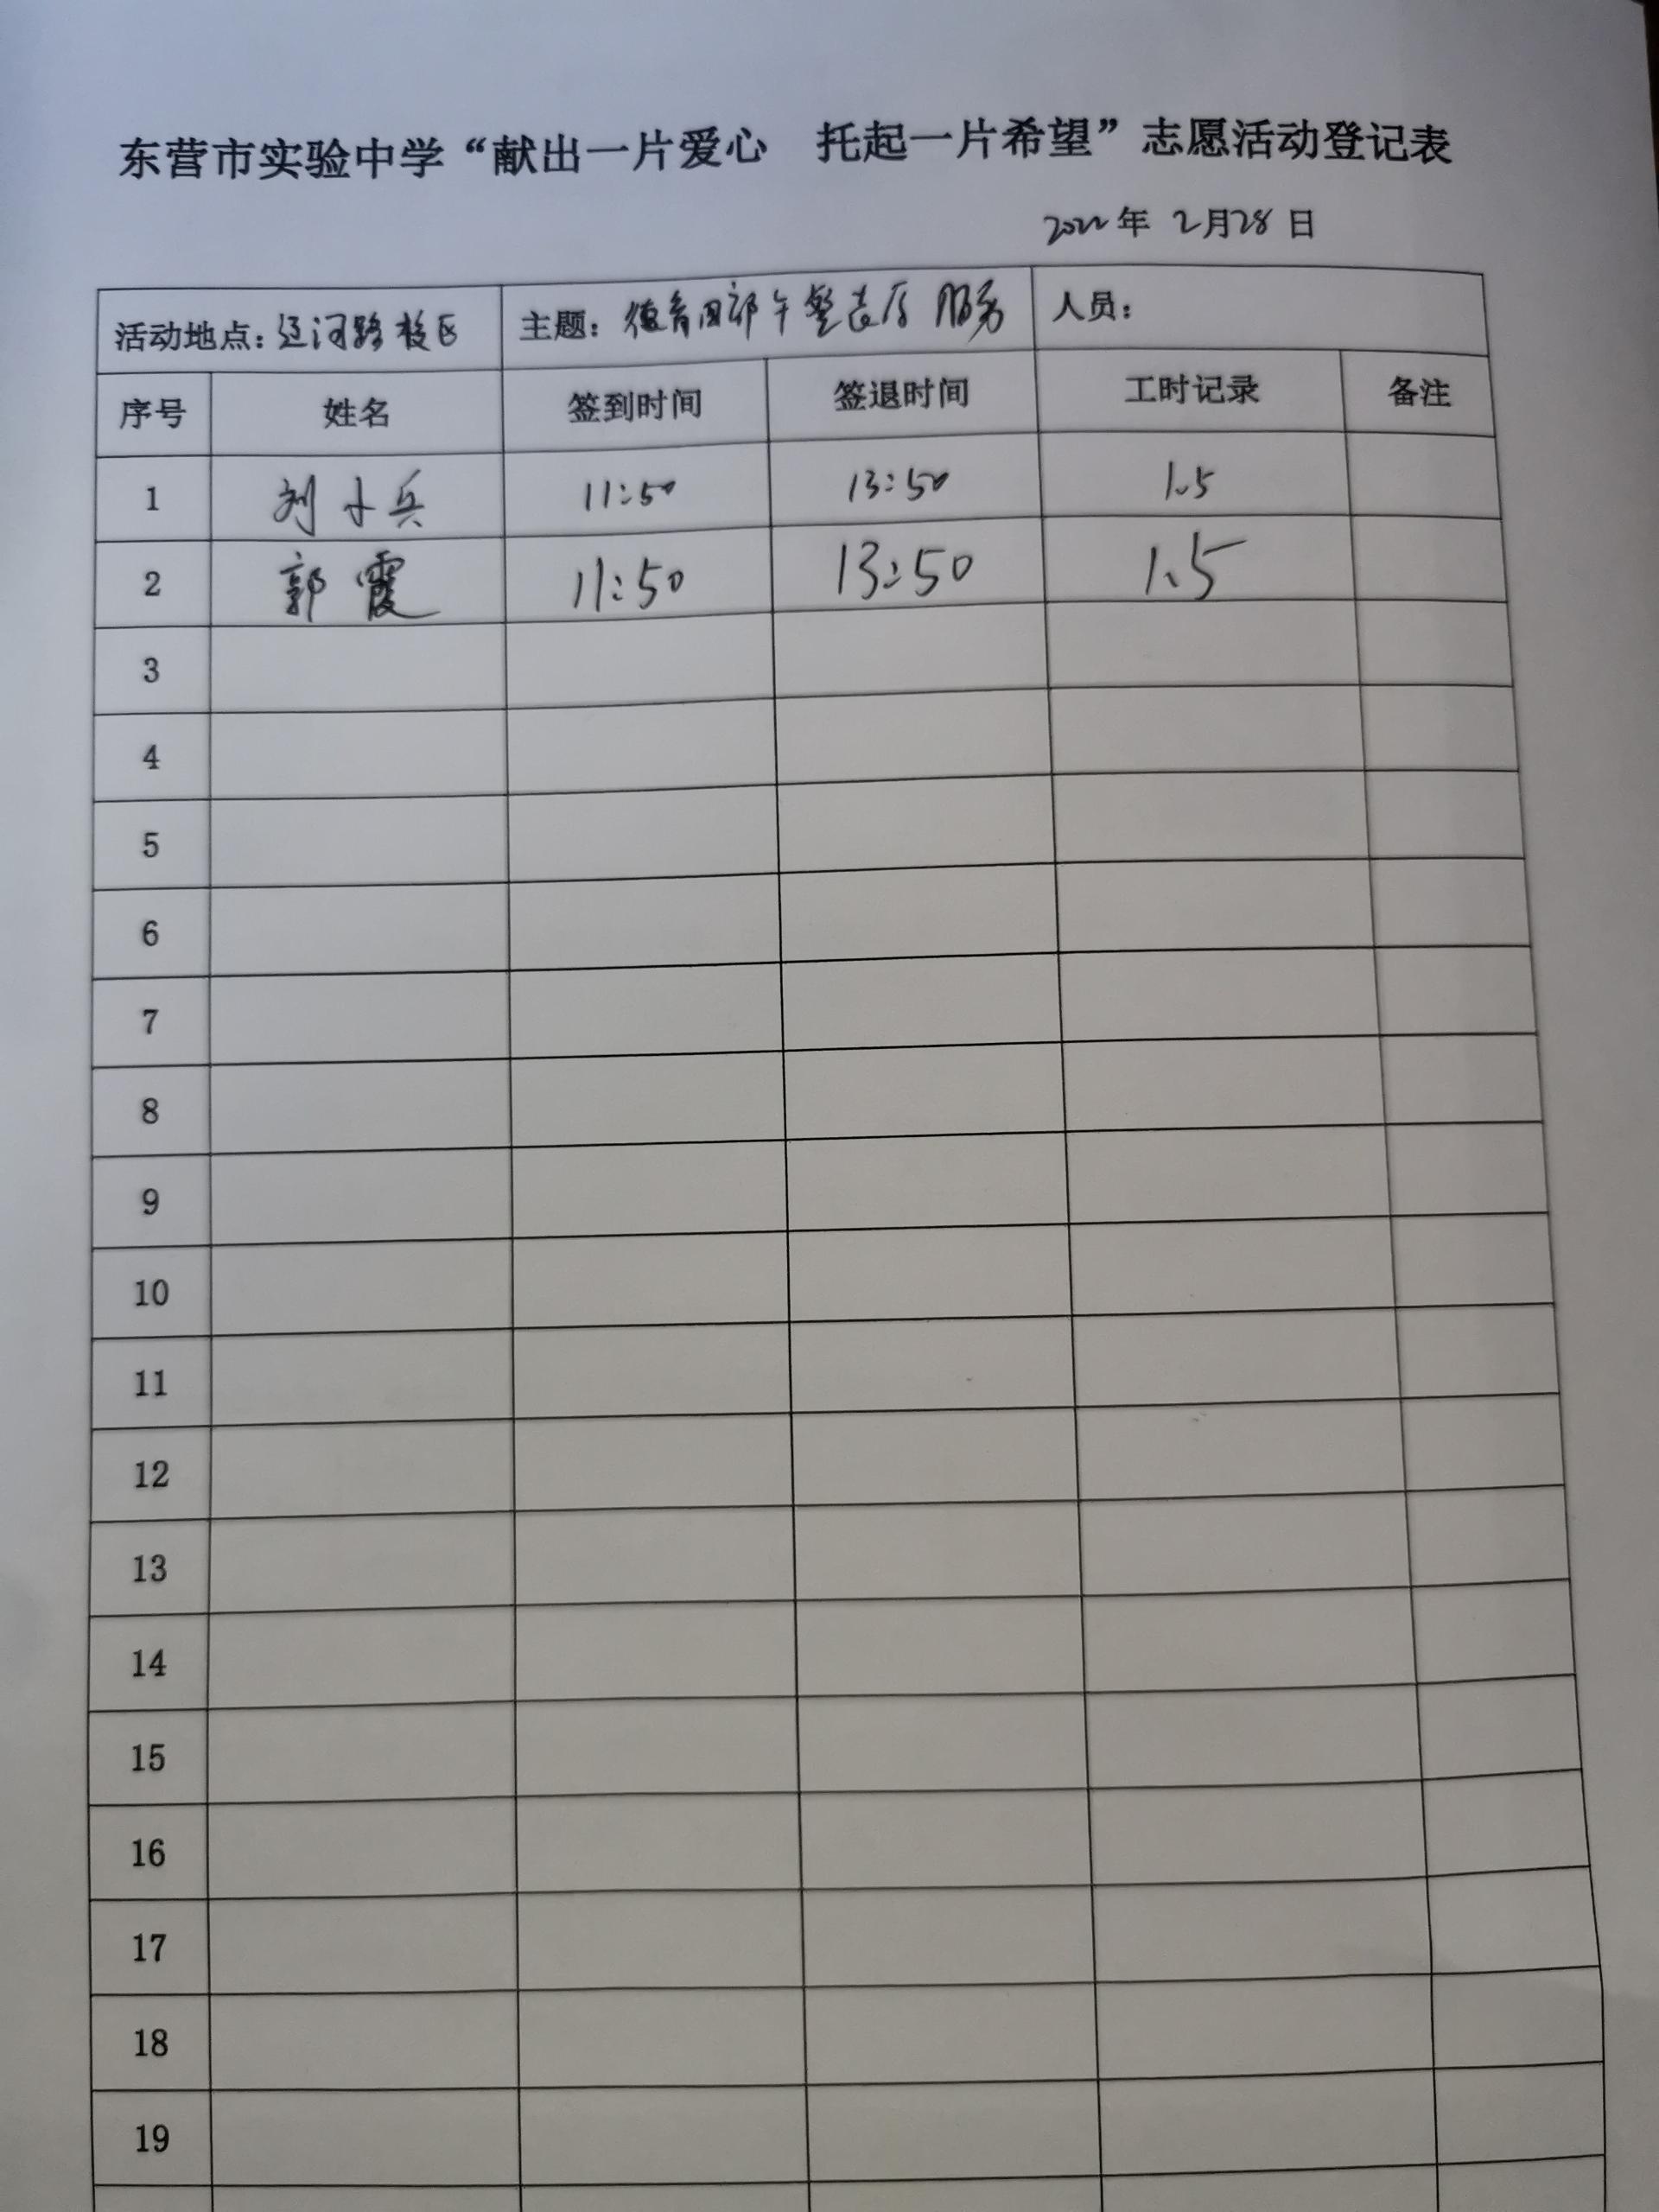 东营市实验中学“献出一片爱心 托起一片希望”志愿活动登记表
2022年 2月28日
活动地点：辽河路校区 主题：德育四部午餐 服务 人员：
序号 姓名 签到时间 签退时间 工时记录 备注
1 刘小兵 11:50 13:50 1.5
2 郭霞 11:50 13:50 1.5
3
4
5
6
7
8
9
10
11
12
13
14
15
16
17
18
19